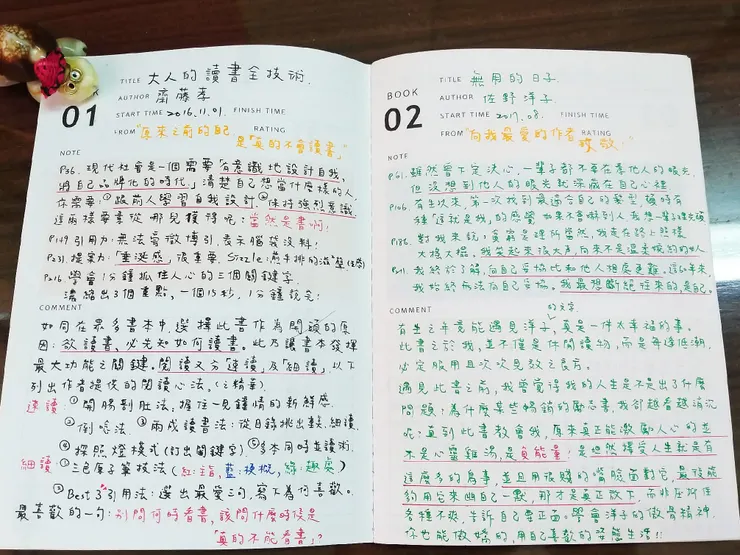 BOOK
01
TITLE 大人的讀書全技術.
AUTHOR 齋藤孝
START TIME 2016.11.01. FINISH TIME
FROM "原來之前的自己, RATING
是「真的不會讀書」"
NOTE
P36. 現代社會是一個需要「有意識地設計自我,
將自己品牌化的時代」清楚自己想當什麼樣的人,
你需要:①跟前人學習自我設計②保持強烈意識
這兩樣要素從哪兒獲得呢:當然是書啊!
P149 引用力:無法旁徵博引,表示腦袋沒料!
P216 學會1分鐘抓住人心的三個關鍵字.
濃縮出3個重點,一個15秒,1分鐘說完!
COMMENT
如同在眾多書本中,選擇此書作為開頭的原
因:欲讀書,必先知如何讀書。此乃讓書本發揮
最大功能之關鍵。閱讀又分「速讀」及「細讀」以下
列出作者提供的閱讀心法。(之精華).
速讀 ①開腸剖肚法,握住一見鍾情的新鮮感.
②倒唸法. ③兩成讀書法:從目錄挑出數表細讀.
④探照燈模式(訂出關鍵字) ⑤多本同時並讀術.
細讀 ①三色原子筆技法(紅:主旨,藍:梗概,綠:趣處)
②Best 3 引用法:選出最愛三句,寫下為何喜歡。
最喜歡的一句:別問何時看書,該問什麼時候是
「真的不能看書」!?
BOOK
02
TITLE 無用的日子.
AUTHOR 佐野洋子.
START TIME 2017.08. FINISH TIME
FROM "向我最愛的作者 RATING
致敬."
NOTE
P61. 雖然曾下定決心,一輩子都不要在意他人的眼光,
但沒想到他人的眼光就深藏在自己心裡
P106. 有生以來,第一次找到最適合自己的髮型,頓時有
種「這就是我」的感覺.
P186. 對我來說,貧窮是理所當然,我走在路上總是
大搖大擺,我笑起來很大聲,向來不是溫柔婉約的女人
P211. 我終於了解,向自己妥協比和他人相處更難,這60年來,
我始終無法向自己妥協。我最想斷絕往來的,是自己.
COMMENT
的文字.
有生之年竟能遇見洋子,真是一件太幸福的事。
此書之於我,並不僅是休閒讀物,而是每逢低潮,
必定服用且次次見效之良方。
遇見此書之前,我曾覺得我的人生是不是出了什麼
問題:為什麼某些暢銷的勵志書,我卻越看越消沉
呢?直到此書教會我,原來真正能激勵人心的並
不是心靈雞湯,是負能量!是坦然擇受人生就是有
這麼多的鳥事,並且用很賤的嘴臉面對它,最後能
夠用它來幽自己一默,那才是真正放下.而非在所有
各種不爽,告訴自己要正面.學會洋子的傲骨精神,
你也能傲嬌的,用自己喜歡的姿態生活!!